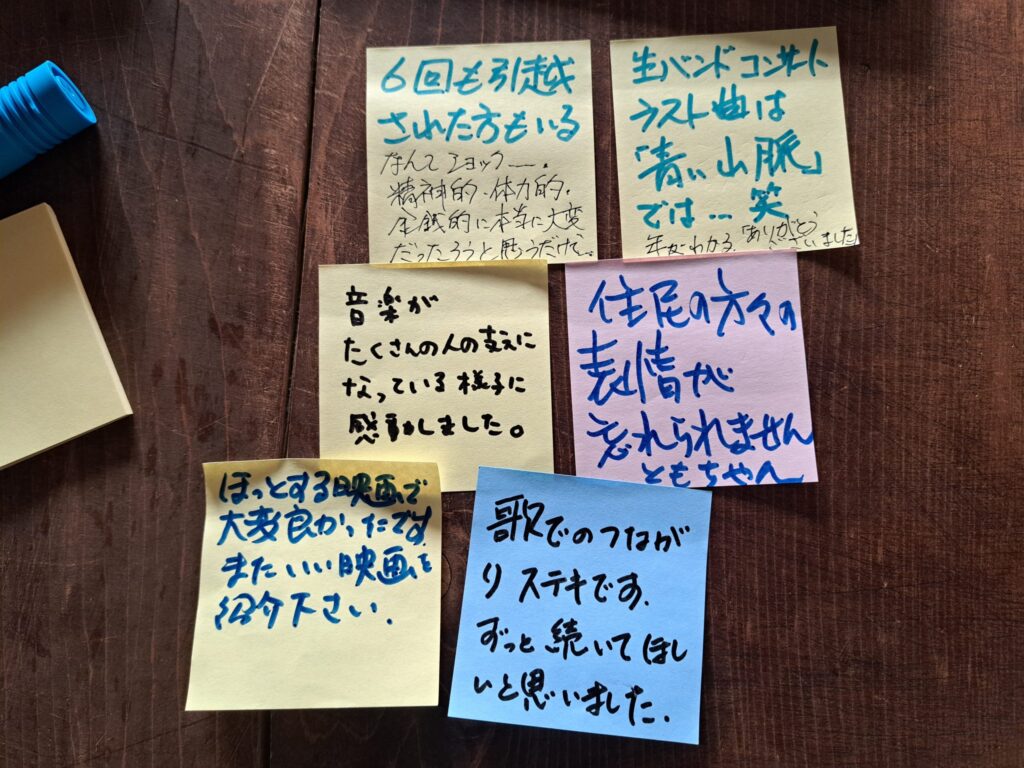 6回も引越
された方もいる
なんてショックー。
精神的・体力的・
金銭的に本当に大変
だったろうと思うだけで…
生バンドコンサート
ラスト曲は
「青い山脈」
では…笑
年がわかる。「ありがとう
ございました」
音楽が
たくさんの人の支えに
なっている様子に
感動しました。
住民の方々の
表情が
忘れられません
ともちゃん
ほっとする映画で
大変良かったです
またいい映画を
紹介下さい.
歌でのつなが 
り ステキです.
ずっと続いてほし
いと思いました.